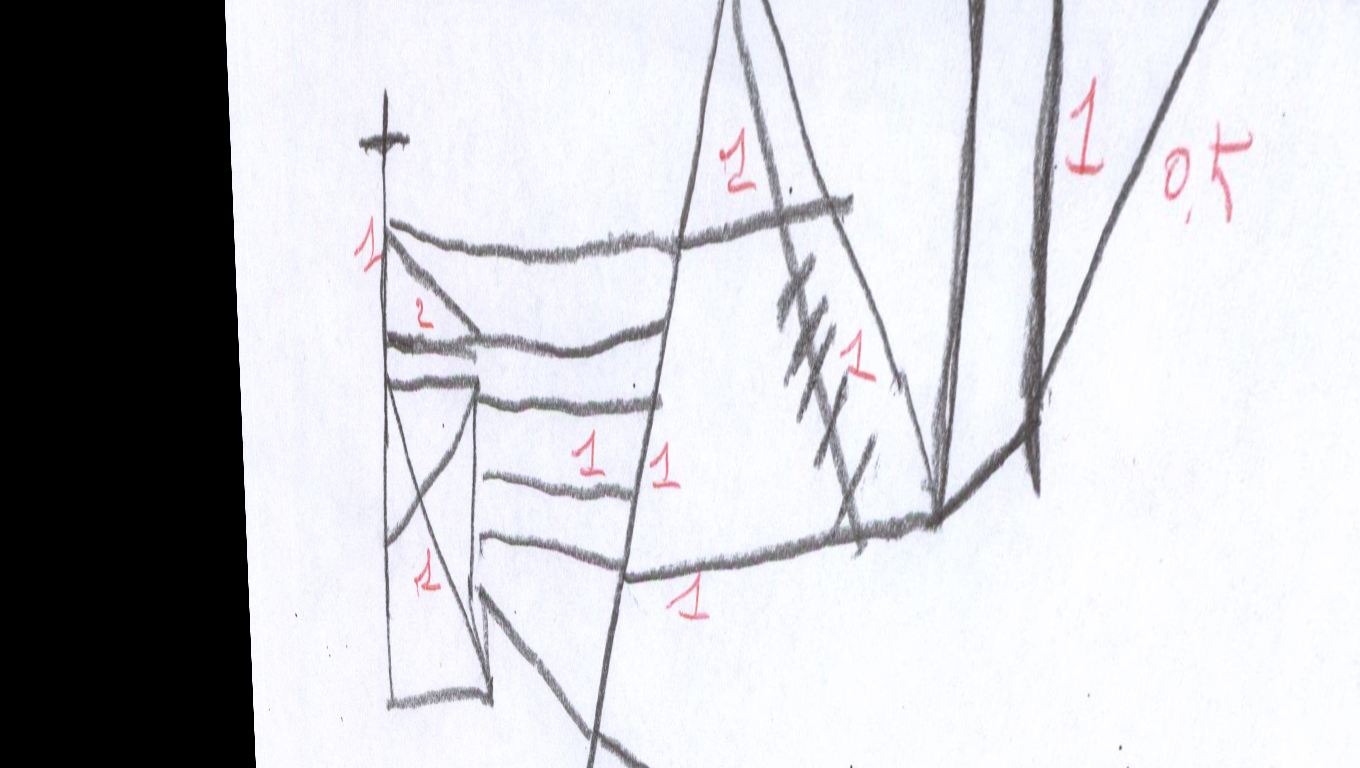 1
0,5
1
1
2
1
1
1
1
1